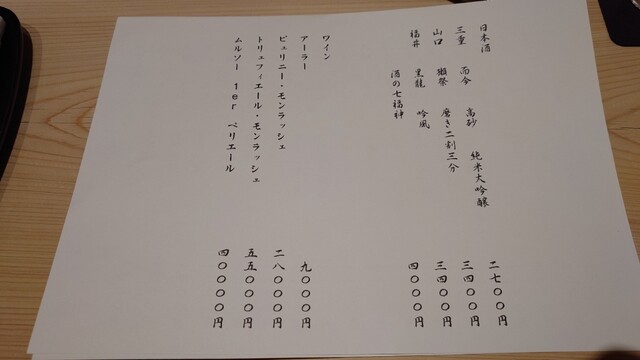 日本酒
三重 而今 高砂 純米大吟醸 二七〇〇円
山口 獺祭 磨き二割三分 三四〇〇円
福井 黒龍 吟風 三四〇〇円
酒の七福神 四〇〇〇円
ワイン
アーラー 九〇〇〇円
ピュリニー・モンラッシェ 二八〇〇〇円
トリュフィエール・モンラッシェ 五五〇〇〇円
ムルソー 1er ペリエール 四〇〇〇〇円